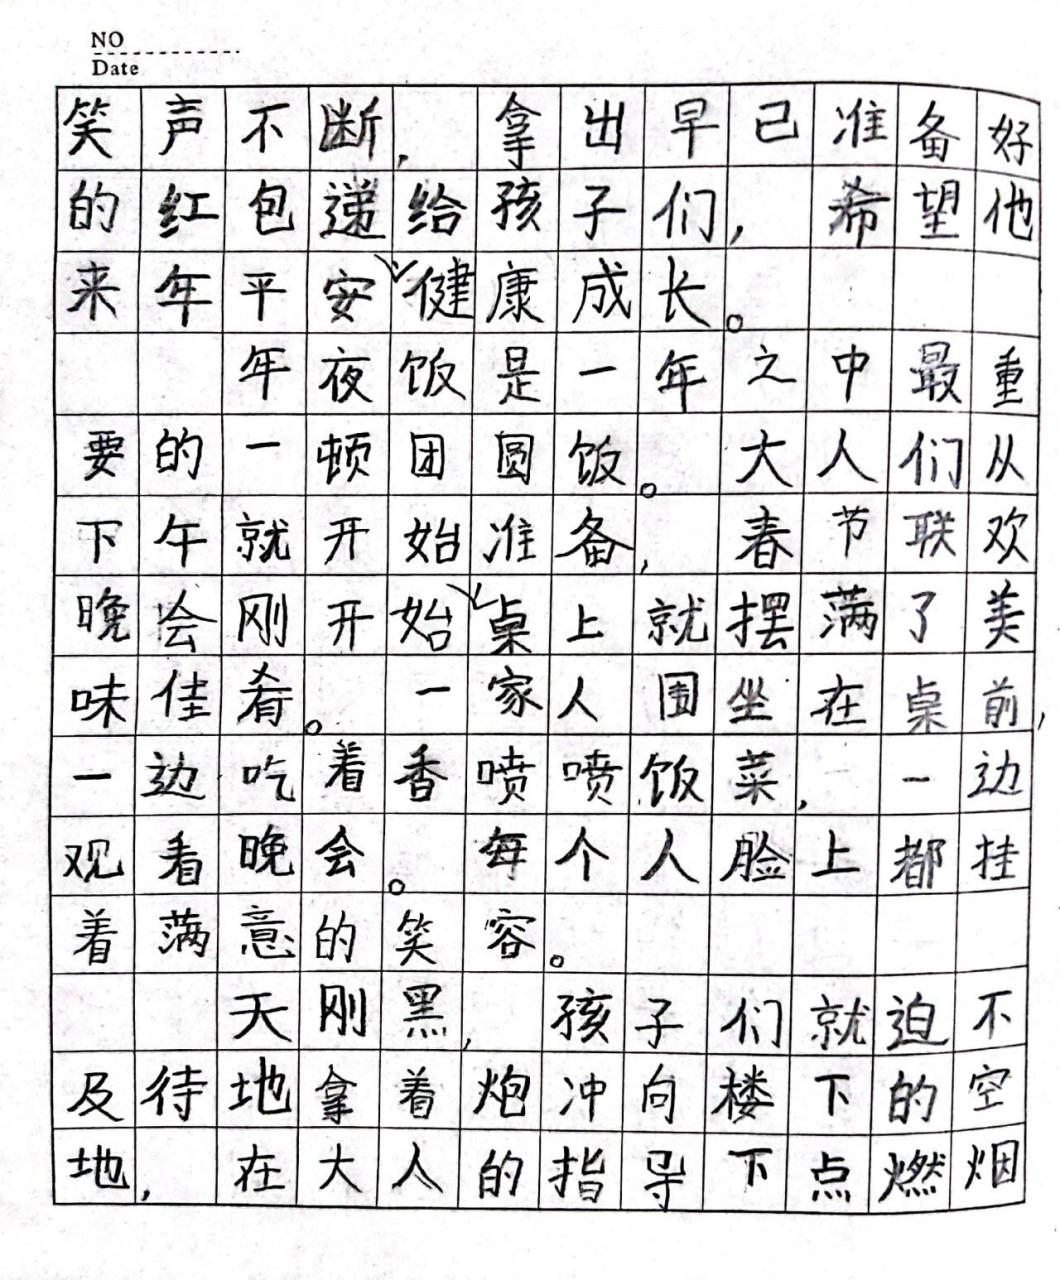 NO
Date
笑声不断,拿出早已准备好
的红包递给孩子们,希望他
来年平安、健康成长。
年夜饭是一年之中最重
要的一顿团圆饭。大人们从
下午就开始准备,春节联欢
晚会刚开始、桌上就摆满了美
味佳肴。一家人围坐在桌前,
一边吃着香喷喷饭菜,一边
观看晚会。每个人脸上都挂
着满意的笑容。
天刚黑,孩子们就迫不
及待地拿着炮冲向楼下的空
地,在大人的指导下点燃烟